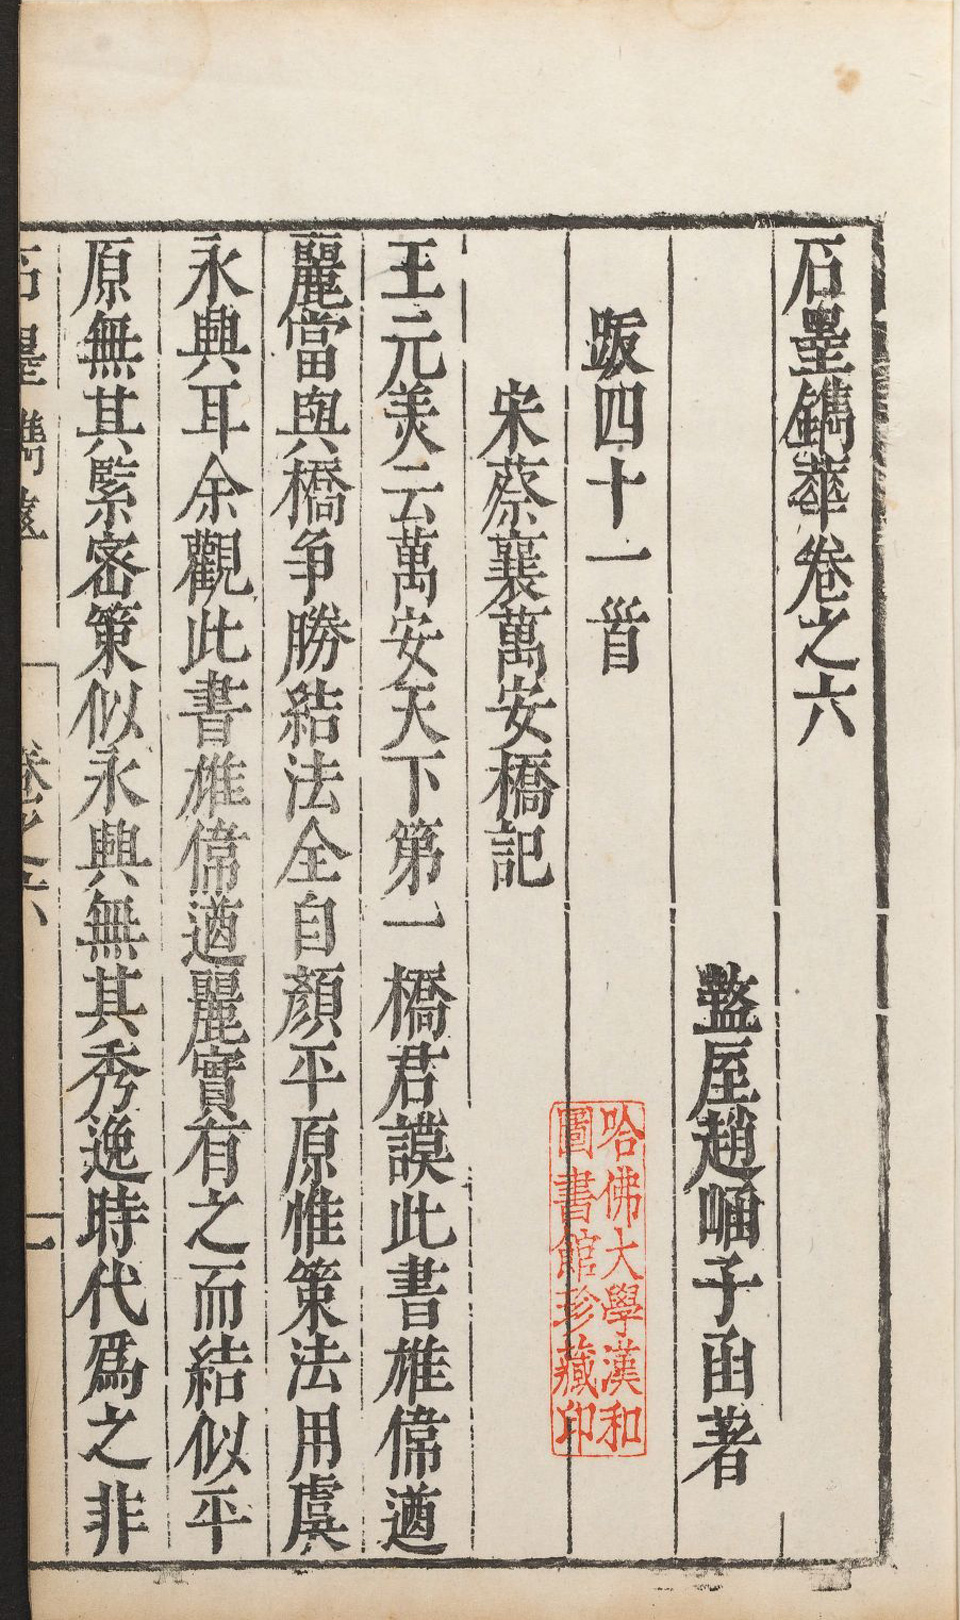 石墨鐫華卷之六
盩厔趙崡子函著
跋四十一首
宋蔡襄萬安橋記
王元美云萬安天下第一橋君謨此書雄偉遒
麗當與橋爭勝結法全自顏平原惟策法用虞
永興耳余觀此書雄偉遒麗實有之而結似平
原無其緊密策似永興無其秀逸時代爲之非
哈佛大學漢和
圖書館珍藏印